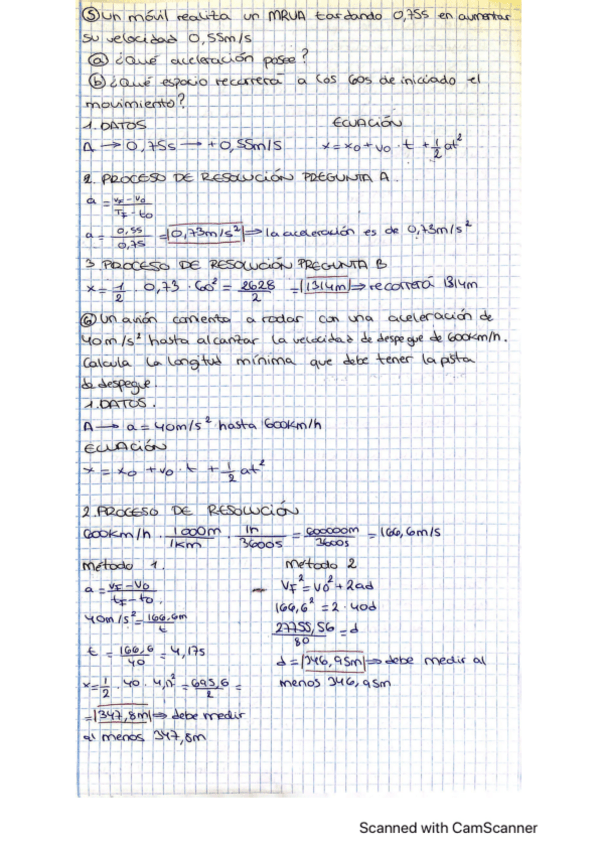 ⑤ Un móvil realiza un MRUA tardando 0,75s en aumentar
su velocidad 0,55m/s
ⓐ ¿Qué aceleración posee?
ⓑ ¿Qué espacio recorrerá a los 60s de iniciado el
movimiento?
1. DATOS
ECUACIÓN
A → 0,75s → +0,55m/s
x = x0 + v0 · t + 1/2 at²
2. PROCESO DE RESOLUCIÓN PREGUNTA A.
a = vF - v0 / TF - t0
a = 0,55 / 0,75 = |0,73m/s²| ⇒ la aceleración es de 0,73m/s²
3 PROCESO DE RESOLUCIÓN PREGUNTA B
x = 1/2 · 0,73 · 60² = 2628/2 = |1314m| ⇒ recorrerá 1314m.
⑥ Un avión comienza a rodar con una aceleración de
40m/s² hasta alcanzar la velocidad de despegue de 600km/h.
Calcula la longitud mínima que debe tener la pista
de despegue.
1. DATOS.
A → a = 40m/s² hasta 600km/h
ECUACIÓN
x = x0 + v0 · t + 1/2 at²
2. PROCESO DE RESOLUCIÓN
600km/h · 1000m/1km · 1h/3600s = 600000m/3600s = 166,6m/s
método 1.
a = vF - v0 / tF - t0
40m/s² = 166,6m / t
t = 166,6 / 40 = 4,17s
x = 1/2 · 40 · 4,17² = 695,6 / 2 =
= |347,8m| ⇒ debe medir
al menos 347,8m
método 2
- VF² = v0² + 2ad
166,6² = 2 · 40d
27755,56 / 80 = d
d = |346,95m| ⇒ debe medir al
menos 346,95m
Scanned with CamScanner